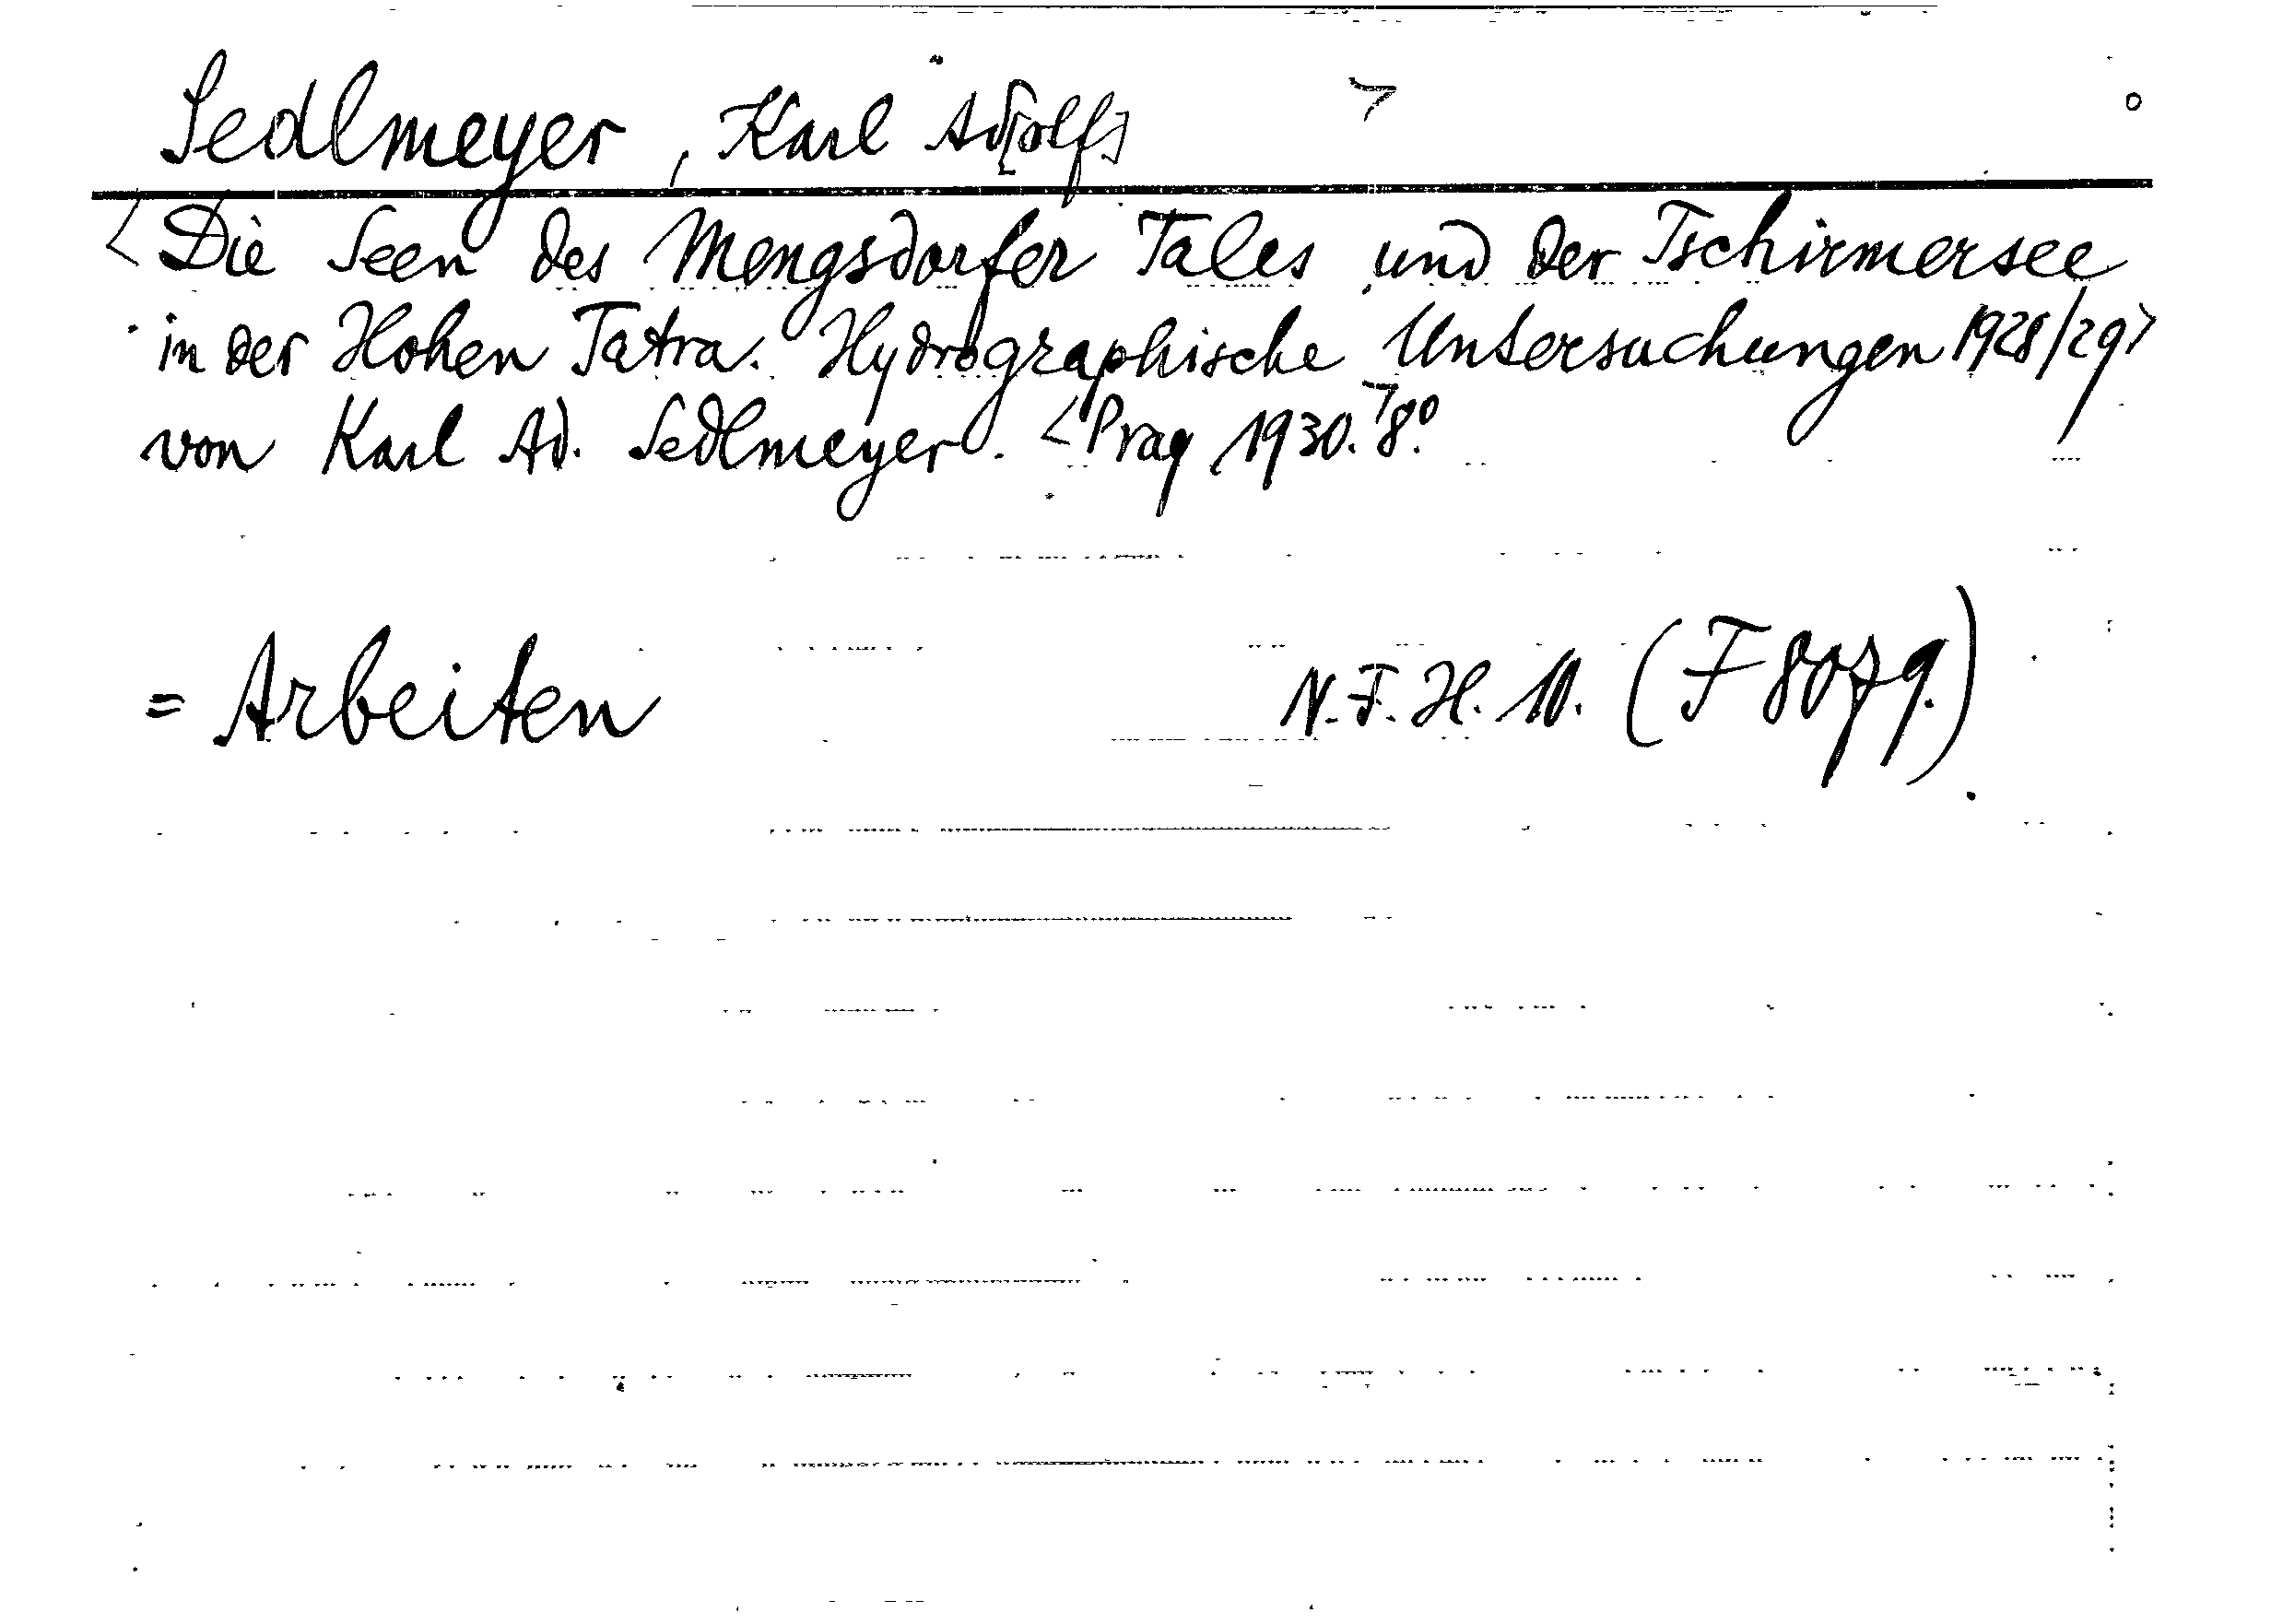 Sedlmeyer, Karl Ad[olf] > o
<Die Seen des Mengsdorfer Tales und der Tschirmersee
in der Hohen Tatra. Hydrographische Untersuchungen 1928/29>
von Karl Ad. Sedlmeyer. <Prag 1930.> 8°.
= Arbeiten N. F. H. 10. (F 8079.)